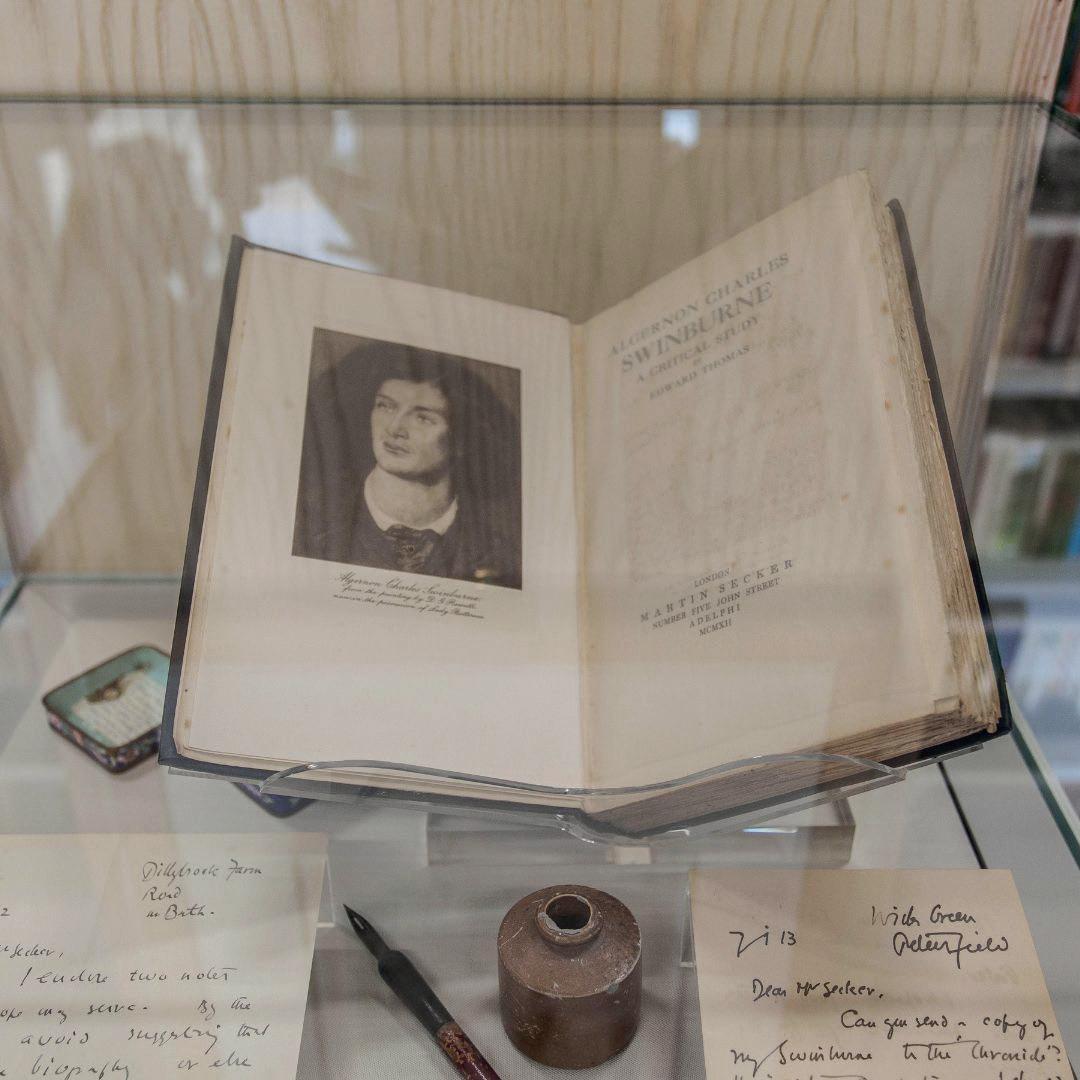 Algernon Charles Swinburne
from the painting by D. G. Rossetti
now in the possession of Lady Battersea
ALGERNON CHARLES
SWINBURNE
A CRITICAL STUDY
BY
EDWARD THOMAS
LONDON
MARTIN SECKER
NUMBER FIVE JOHN STREET
ADELPHI
MCMXII
Dillybrook Farm
Road
nr Bath.
2
Secker,
I enclose two notes
hope may serve. By the
avoid suggesting that
biography or else
7 i 13
Wick Green
Petersfield
Dear Mr Secker,
Can you send a copy of
my Swinburne to the Chronicle?